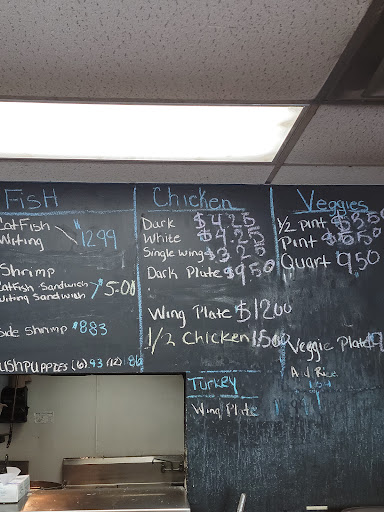 FisH
CatFish
Witing $1299
Shrimp
Catfish Sandwich
Witing Sandwich 5.00
Side Shrimp $883
HushPuppies (6).93 (12)1.86
Chicken
Dark $4.25
White $4.25
Single wing $3.25
Dark Plate $9.50
Wing Plate $1200
1/2 Chicken 1500
Turkey
Wing Plate
Veggies
1/2 pint $3.50
Pint $5.50
Quart 9.50
Veggie Plate
Add Rice